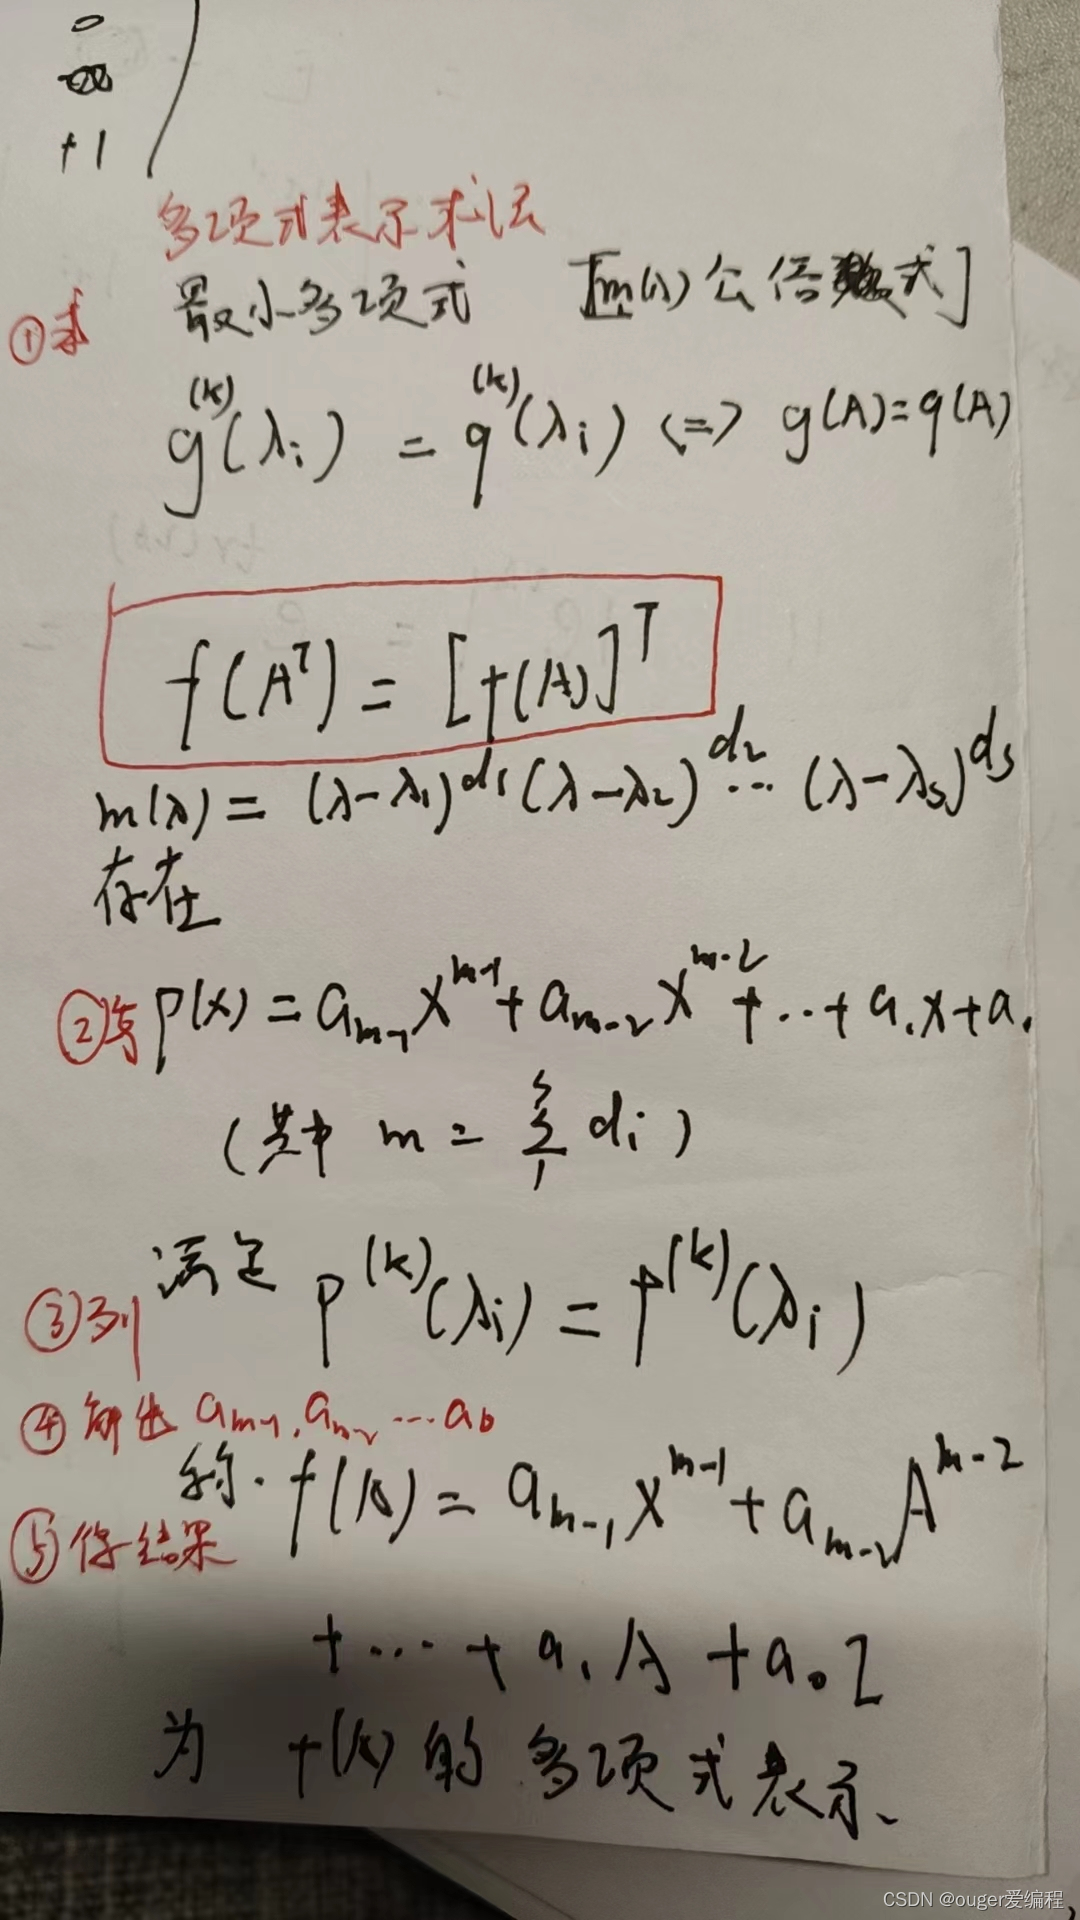 0
+1
多项式表示求法
①求 最小多项式 [m(λ)公倍式]
g^(k)(λi) = q^(k)(λi) <=> g(A)=q(A)
f(A^T) = [f(A)]^T
m(λ) = (λ-λ1)^d1 (λ-λ2)^d2 … (λ-λs)^ds
存在
②写 p(x) = a_{m-1}x^{m-1} + a_{m-2}x^{m-2} + … + a1x + a0
(其中 m = Σ_1^s di)
③列 满足 p^(k)(λi) = f^(k)(λi)
④解出 a_{m-1}, a_{m-2} … a0
称. f(A) = a_{m-1}x^{m-1} + a_{m-2}A^{m-2}
⑤得结果
+ … + a1A + a0I
为 f(A) 的多项式表示.
CSDN @ouger爱编程